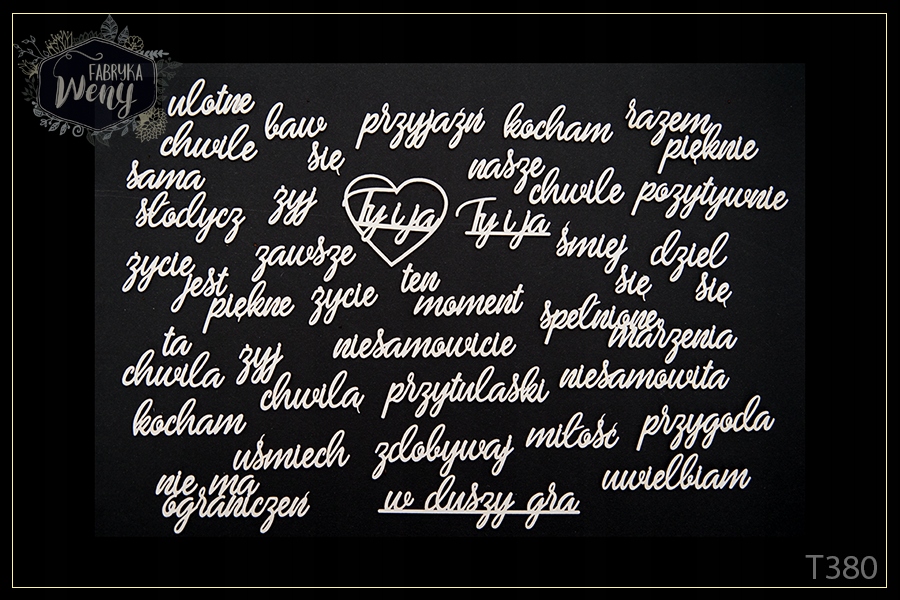 FABRYKA
Weny
ulotne
chwile
baw
się
przyjaźń
kocham
razem
pięknie
sama
słodycz
żyj
Ty i ja
nasze
chwile
pozytywnie
Ty i ja
śmiej
się
dziel
się
życie
jest
piękne
zawsze
życie
ten
moment
spełnione
marzenia
ta
chwila
żyj
chwilą
niesamowicie
przytulaski
niesamowita
kocham
uśmiech
zdobywaj
miłość
przygoda
nie ma
ograniczeń
w duszy gra
uwielbiam
T380